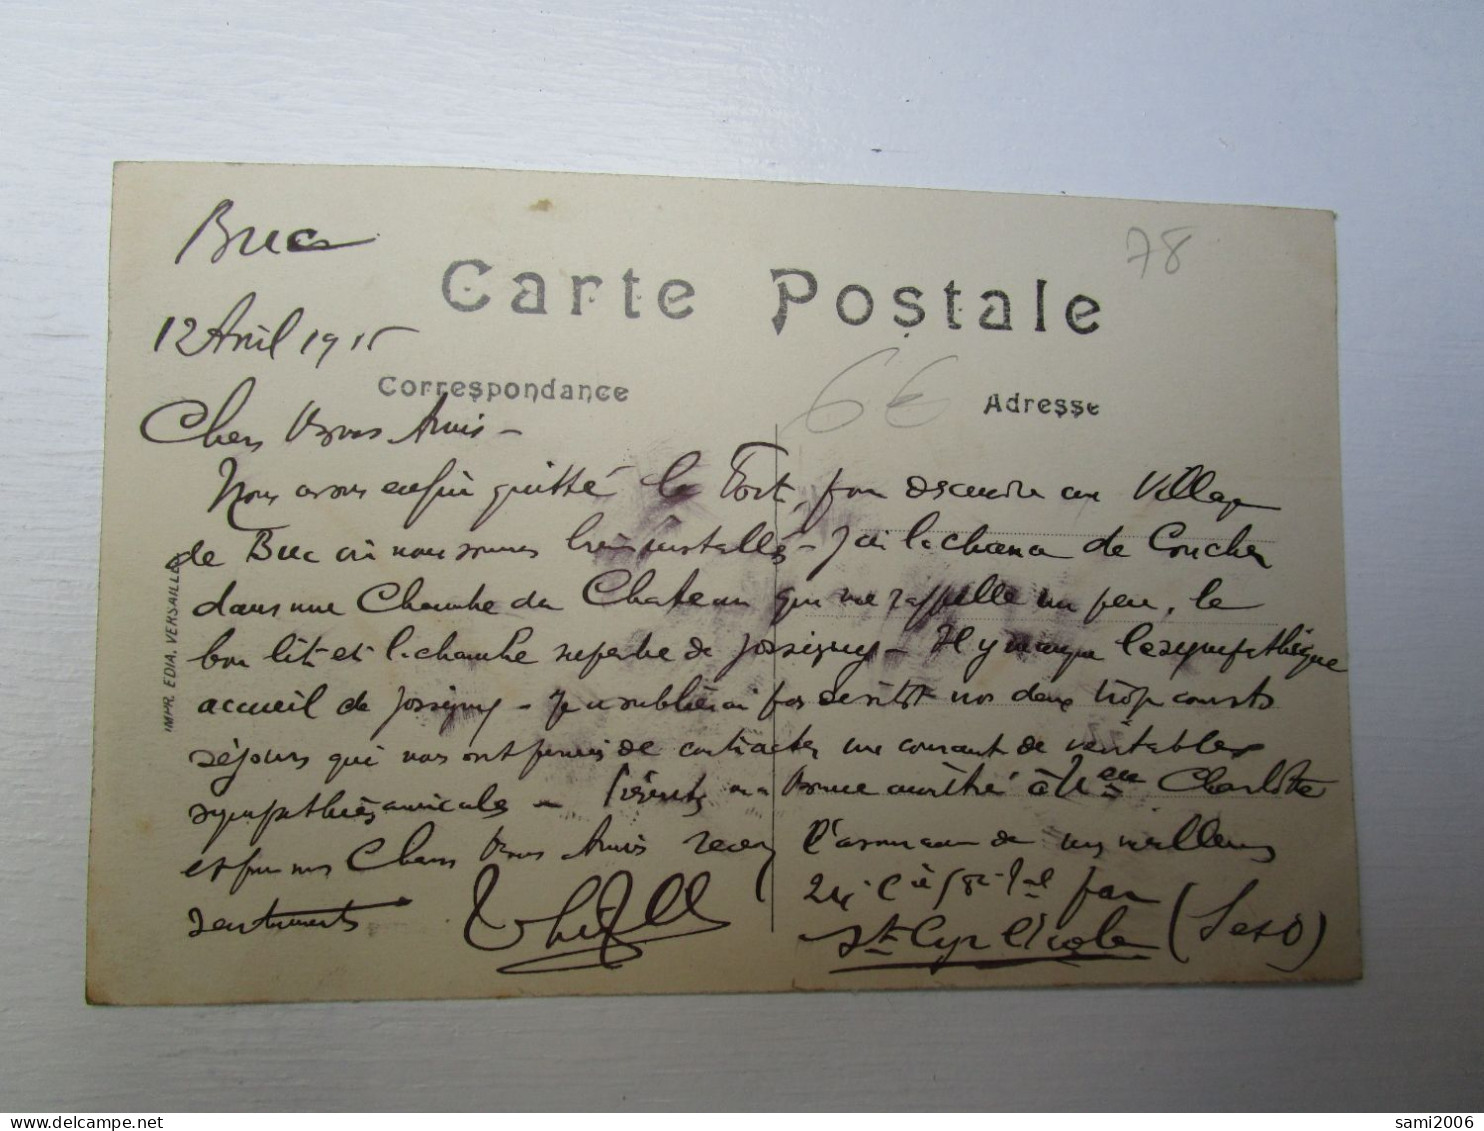 Buc
78
Carte Postale
12 Avril 1915
6€
Correspondance
Adresse
Chers Bons Amis -
Nous avons enfin quitté le Fort, pour descendre au Village
de Buc où nous sommes bien installés - J'ai la chance de Coucher
dans une Chambre du Chateau qui me rappelle un peu, le
bon lit et la chambre superbe de Jossigny - Il y manque le sympathique
accueil de Jossigny - Je n'oublierai pas de sitôt nos deux trop courts
séjours qui nous ont permis de contracter un courant de véritables
sympathies amicales - Présentez ma bonne amitié à Mme Charlotte
et pour vous Chers Bons Amis recevez l'assurance de mes meilleurs
sentiments
24e Cie 58e Tal par
St Cyr l'Ecole (S et O)
IMPR. EDIA, VERSAILLES
sami2006